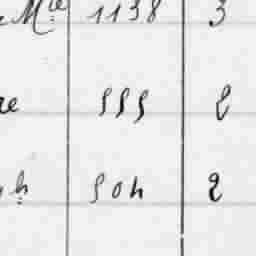 Mie 1138 3
re 555 2
h 504 2